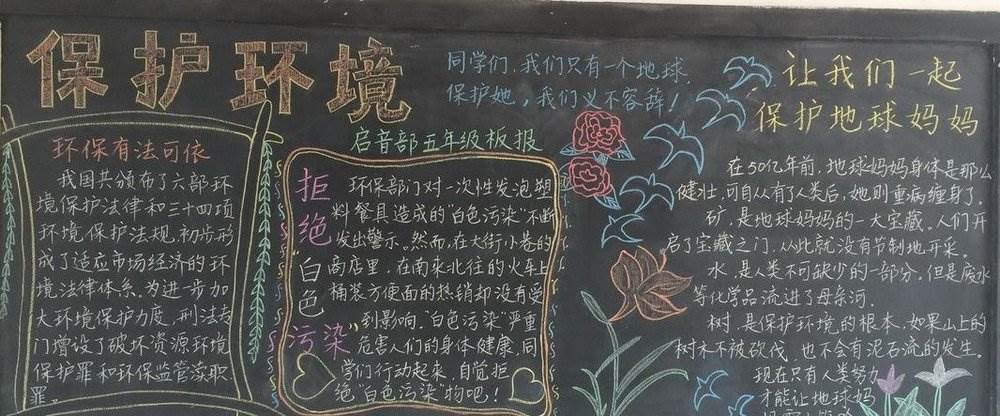 保护环境
同学们,我们只有一个地球,
保护她,我们义不容辞!
启音部五年级板报
环保有法可依
我国共颁布了六部环
境保护法律和三十四项
环境保护法规,初步形
成了适应市场经济的环
境法律体系。为进步加
大环境保护力度,刑法专
门增设了破坏资源环境
保护罪和环保监管渎职
罪。
拒绝"白色污染"
环保部门对一次性发泡塑
料餐具造成的"白色污染"不断
发出警示。然而,在大街小巷的
商店里,在南来北往的火车上
桶装方便面的热销却没有受
到影响。"白色污染"严重
危害人们的身体健康,同
学们行动起来,自觉拒
绝"白色污染"物吧!
让我们一起
保护地球妈妈
在50亿年前,地球妈妈身体是那么
健壮,可自从有了人类后,她则重病缠身了。
矿,是地球妈妈的一大宝藏。人们开
启了宝藏之门,从此就没有节制地开采。
水,是人类不可缺少的一部分,但是废水
等化学品流进了母亲河。
树,是保护环境的根本,如果山上的
树木不被砍伐,也不会有泥石流的发生。
现在只有人类努力
才能让地球妈